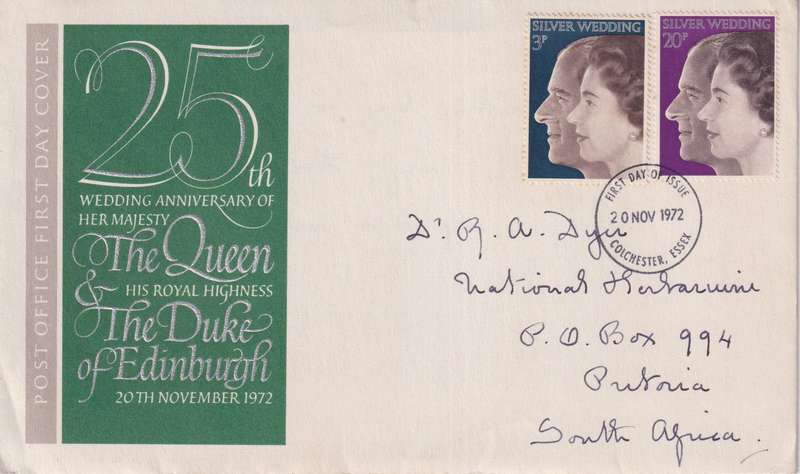 POST OFFICE FIRST DAY COVER
25th
WEDDING ANNIVERSARY OF
HER MAJESTY
The Queen
& HIS ROYAL HIGHNESS
The Duke
of Edinburgh
20TH NOVEMBER 1972
SILVER WEDDING
3P
SILVER WEDDING
20P
FIRST DAY OF ISSUE
20 NOV 1972
COLCHESTER, ESSEX
Dr. R. A. Dyer
National Herbarium
P. O. Box 994
Pretoria
South Africa.